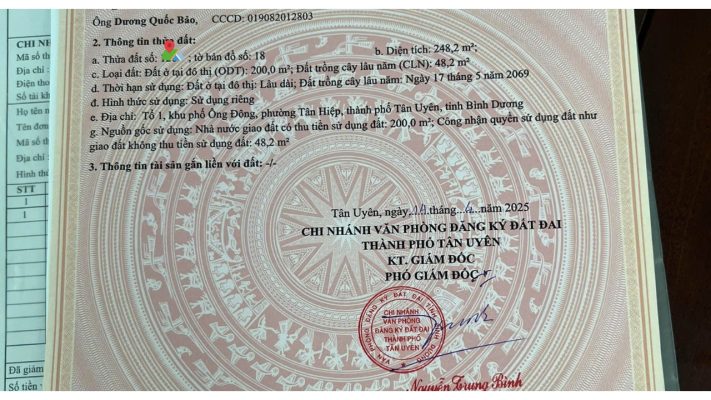 Ông Dương Quốc Bảo, CCCD: 019082012803
2. Thông tin thửa đất:
a. Thửa đất số: ; tờ bản đồ số: 18 b. Diện tích: 248,2 m²;
c. Loại đất: Đất ở tại đô thị (ODT): 200,0 m²; Đất trồng cây lâu năm (CLN): 48,2 m²
d. Thời hạn sử dụng: Đất ở tại đô thị: Lâu dài; Đất trồng cây lâu năm: Ngày 17 tháng 5 năm 2069
đ. Hình thức sử dụng: Sử dụng riêng
e. Địa chỉ: Tổ 1, khu phố Ông Đông, phường Tân Hiệp, thành phố Tân Uyên, tỉnh Bình Dương
g. Nguồn gốc sử dụng: Nhà nước giao đất có thu tiền sử dụng đất: 200,0 m²; Công nhận quyền sử dụng đất như
giao đất không thu tiền sử dụng đất: 48,2 m²
3. Thông tin tài sản gắn liền với đất: -/-
Tân Uyên, ngày tháng 4 năm 2025
CHI NHÁNH VĂN PHÒNG ĐĂNG KÝ ĐẤT ĐAI
THÀNH PHỐ TÂN UYÊN
KT. GIÁM ĐỐC
PHÓ GIÁM ĐỐC
VĂN PHÒNG ĐĂNG KÝ ĐẤT ĐAI TỈNH BÌNH DƯƠNG
CHI NHÁNH
VĂN PHÒNG
ĐĂNG KÝ ĐẤT ĐAI
THÀNH PHỐ
TÂN UYÊN
Nguyễn Trung Bình
CHI NH
Mã số th
Địa chỉ :
Điện tho
Số tài kh
Họ tên n
Tên đơn
Mã số th
Địa chỉ :
Hình thứ
STT
1
1
Đã giảm
Số tiền